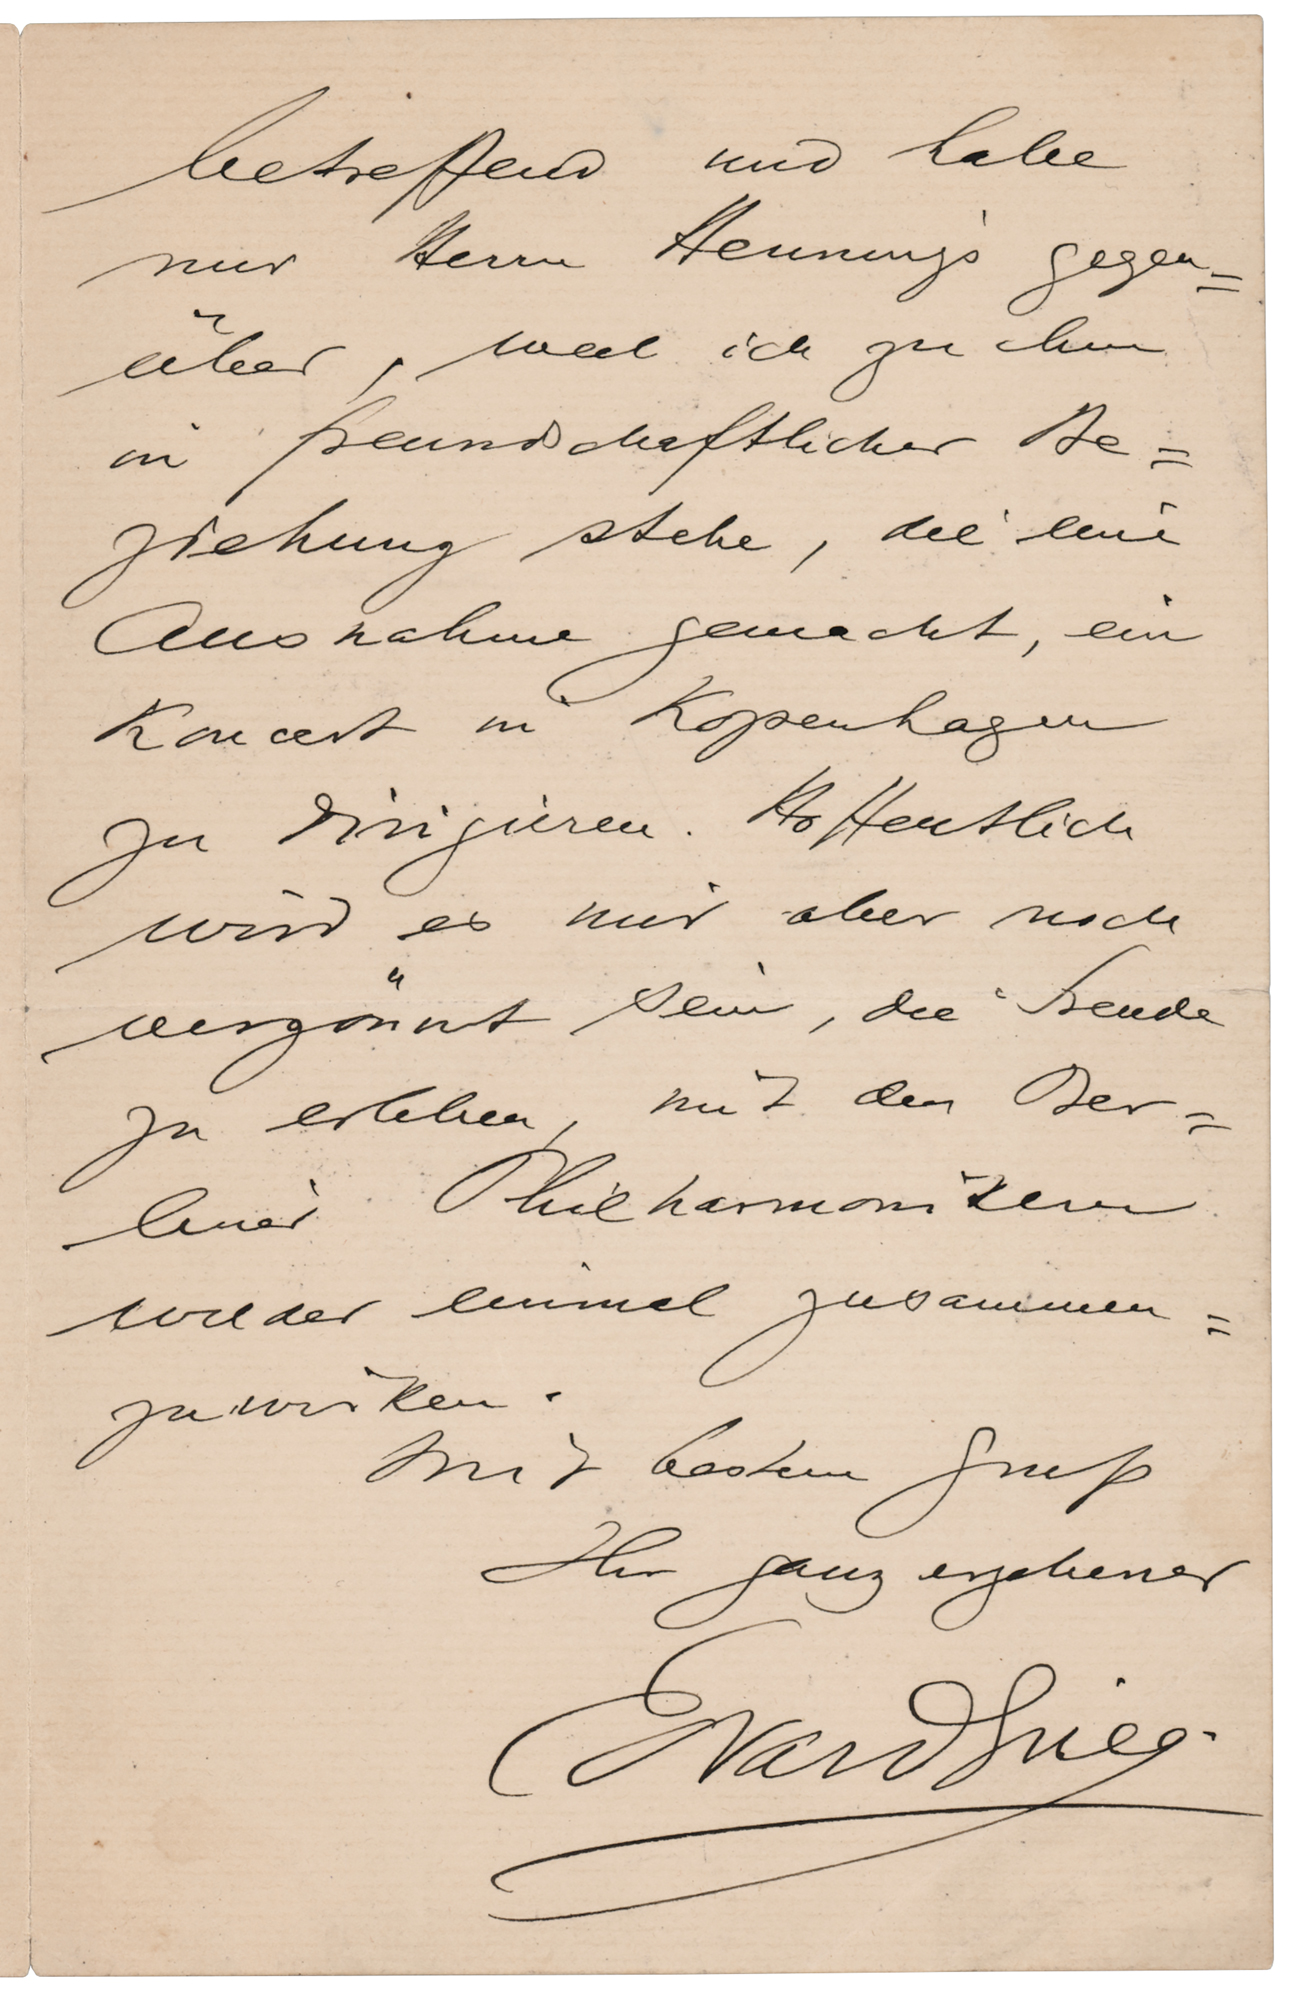 betreffend und habe
nur Herrn Hennings gegen=
über, weil ich zu ihm
in freundschaftlicher Be=
ziehung stehe, die eine
Ausnahme gemacht, ein
Koncert in Kopenhagen
zu dirigieren. Hoffentlich
wird es mir aber noch
vergönnt sein, die Freude
zu erleben, mit den Ber=
liner Philharmonikern
wieder einmal zusammen=
zuwirken.
Mit bestem Gruß
Ihr ganz ergebener
Edvard Grieg